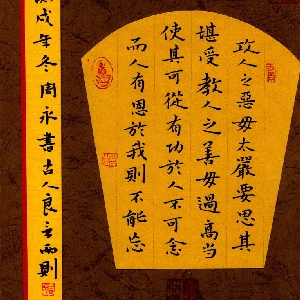 攻人之惡毋太嚴要思其
堪受教人之善毋過高當
使其可從有功於人不可念
而人有恩於我則不能忘
戌年冬周永書古人良言兩則